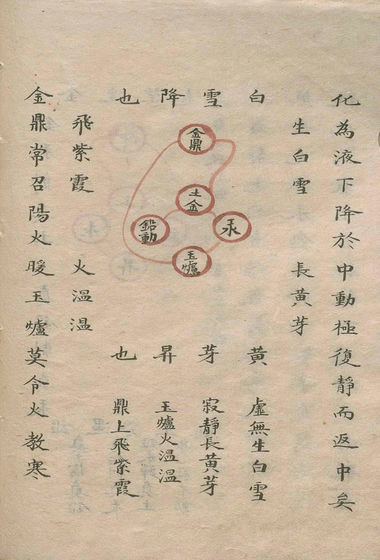 化為液下降於中動極復靜而返中矣
生白雪　長黃芽
白雪降也
金鼎
土金
鉛動
汞
玉爐
黃芽昇也
虛無生白雪
寂靜長黃芽
玉爐火溫溫
鼎上飛紫霞
飛紫霞　火溫溫
金鼎常召陽火暖玉爐莫令火教寒